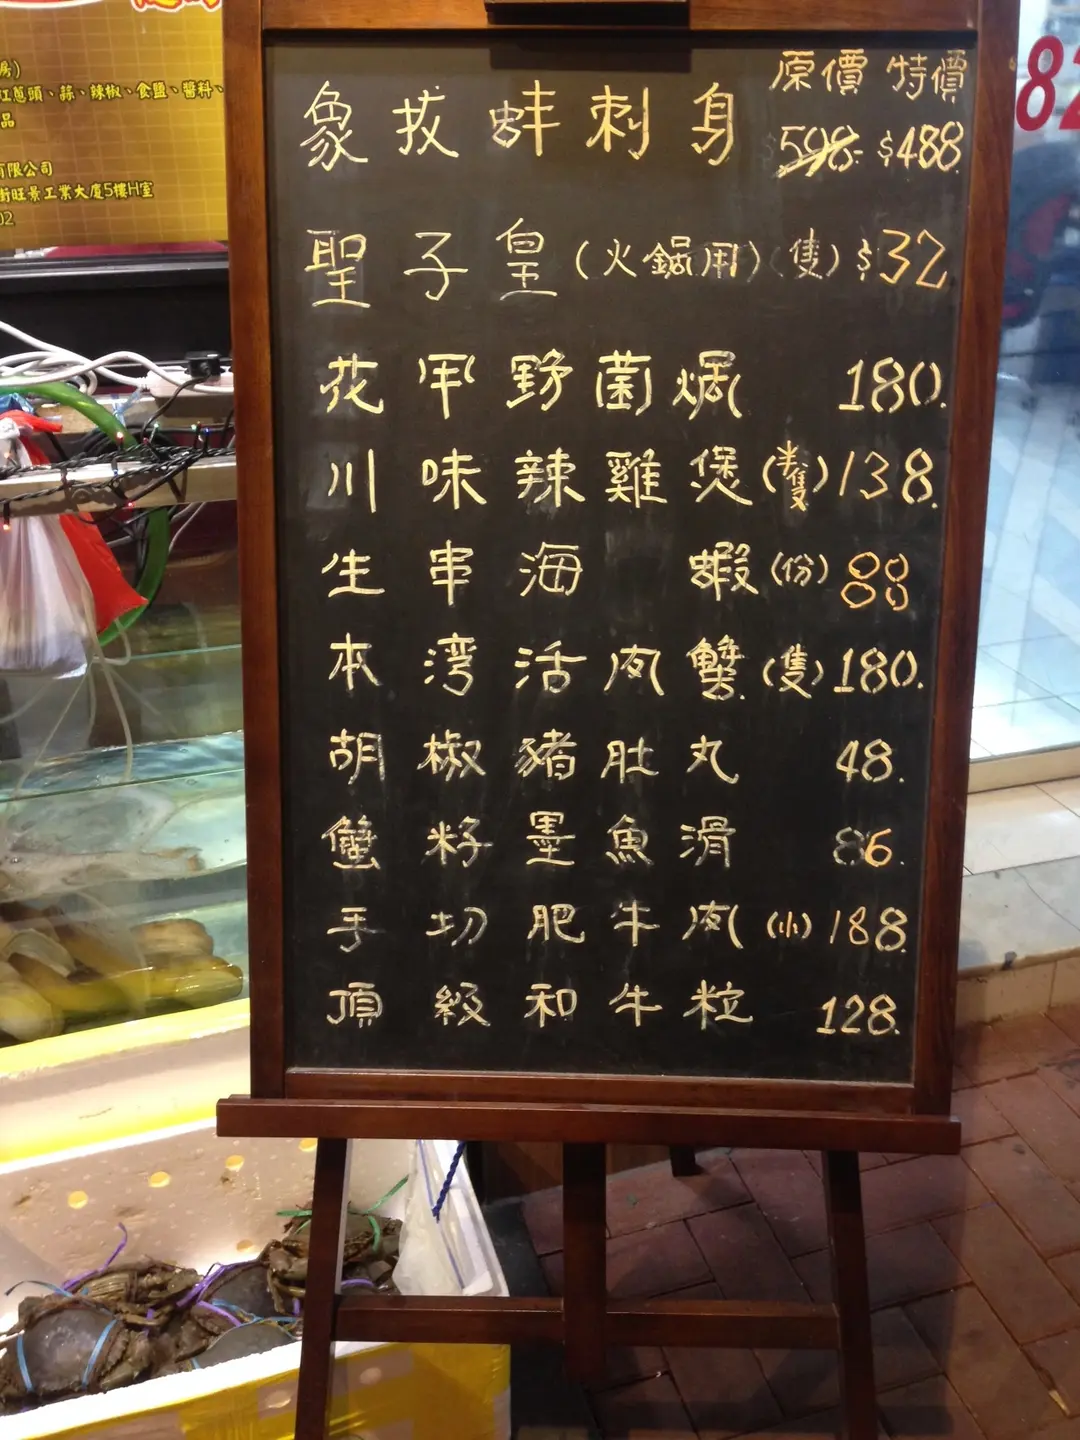 房)
紅蔥頭、蒜、辣椒、食鹽、醬料、
品
有限公司
街旺景工業大廈5樓H室
02
82
原價 特價
象拔蚌刺身 $598 $488
聖子皇(火鍋用)(隻) $32
花甲野菌焗 180.
川味辣雞煲(半隻) 138.
生串海蝦(份) 88
本湾活肉蟹(隻) 180.
胡椒豬肚丸 48.
蟹籽墨魚滑 86.
手切肥牛肉(小) 188.
頂級和牛粒 128.